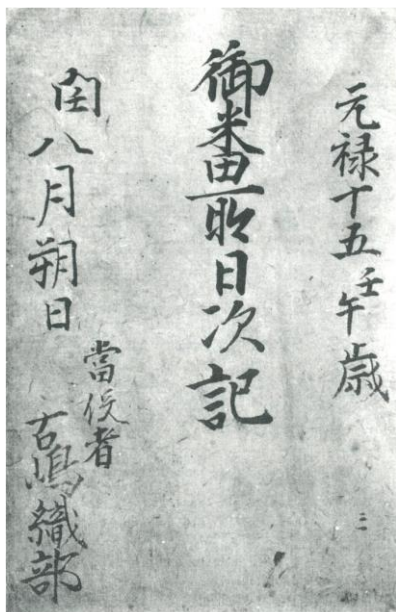 元禄十五壬午歳
御番所日次記
閏八月朔日
當役者
古嶋織部